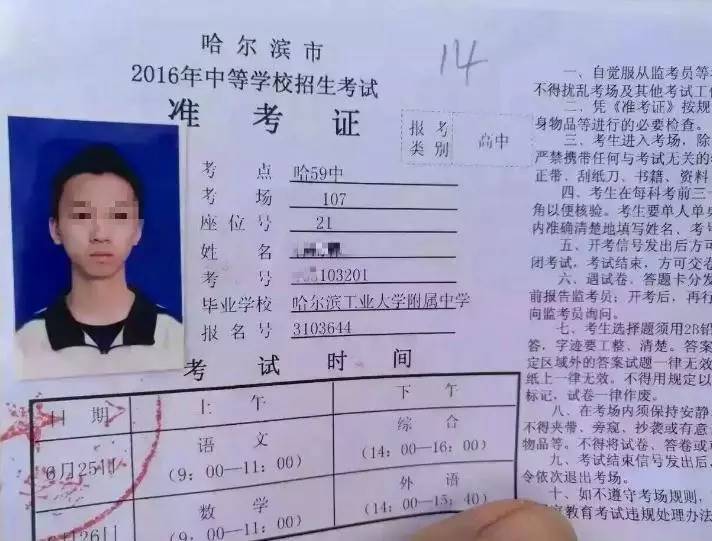 哈尔滨市
2016年中等学校招生考试
准考证
14
报考类别 高中
考点 哈59中
考场 107
座位号 21
姓名
考号 103201
毕业学校 哈尔滨工业大学附属中学
报名号 3103644
考试时间
日期 上午 下午
6月25日 语文 (9:00—11:00) 综合 (14:00—16:00)
月26日 数学 (9:00—11:00) 外语 (14:00—15:40)
一、自觉服从监考员等
不得扰乱考场及其他考试工
二、凭《准考证》按规
身物品等进行的必要检查。
三、考生进入考场，除
严禁携带任何与考试无关的
正带、刮纸刀、书籍、资料
四、考生在每科考前三十
角以便核验。考生要单人单桌
内准确清楚地填写姓名、考号
五、开考信号发出后方可
闭考试，考试结束，方可交卷
六、遇试卷、答题卡分发
前报告监考员；开考后，再行
向监考员询问。
七、考生选择题须用2B铅
答，字迹要工整、清楚。答案
定区域外的答案试题一律无效
纸上一律无效。不得用规定以
标记，试卷一律作废。
八、在考场内须保持安静
不得夹带、旁窥、抄袭或有意
物品等。不得将试卷、答卷或
九、考试结束信号发出后，
令依次退出考场。
十、如不遵守考场规则，
教育考试违规处理办法